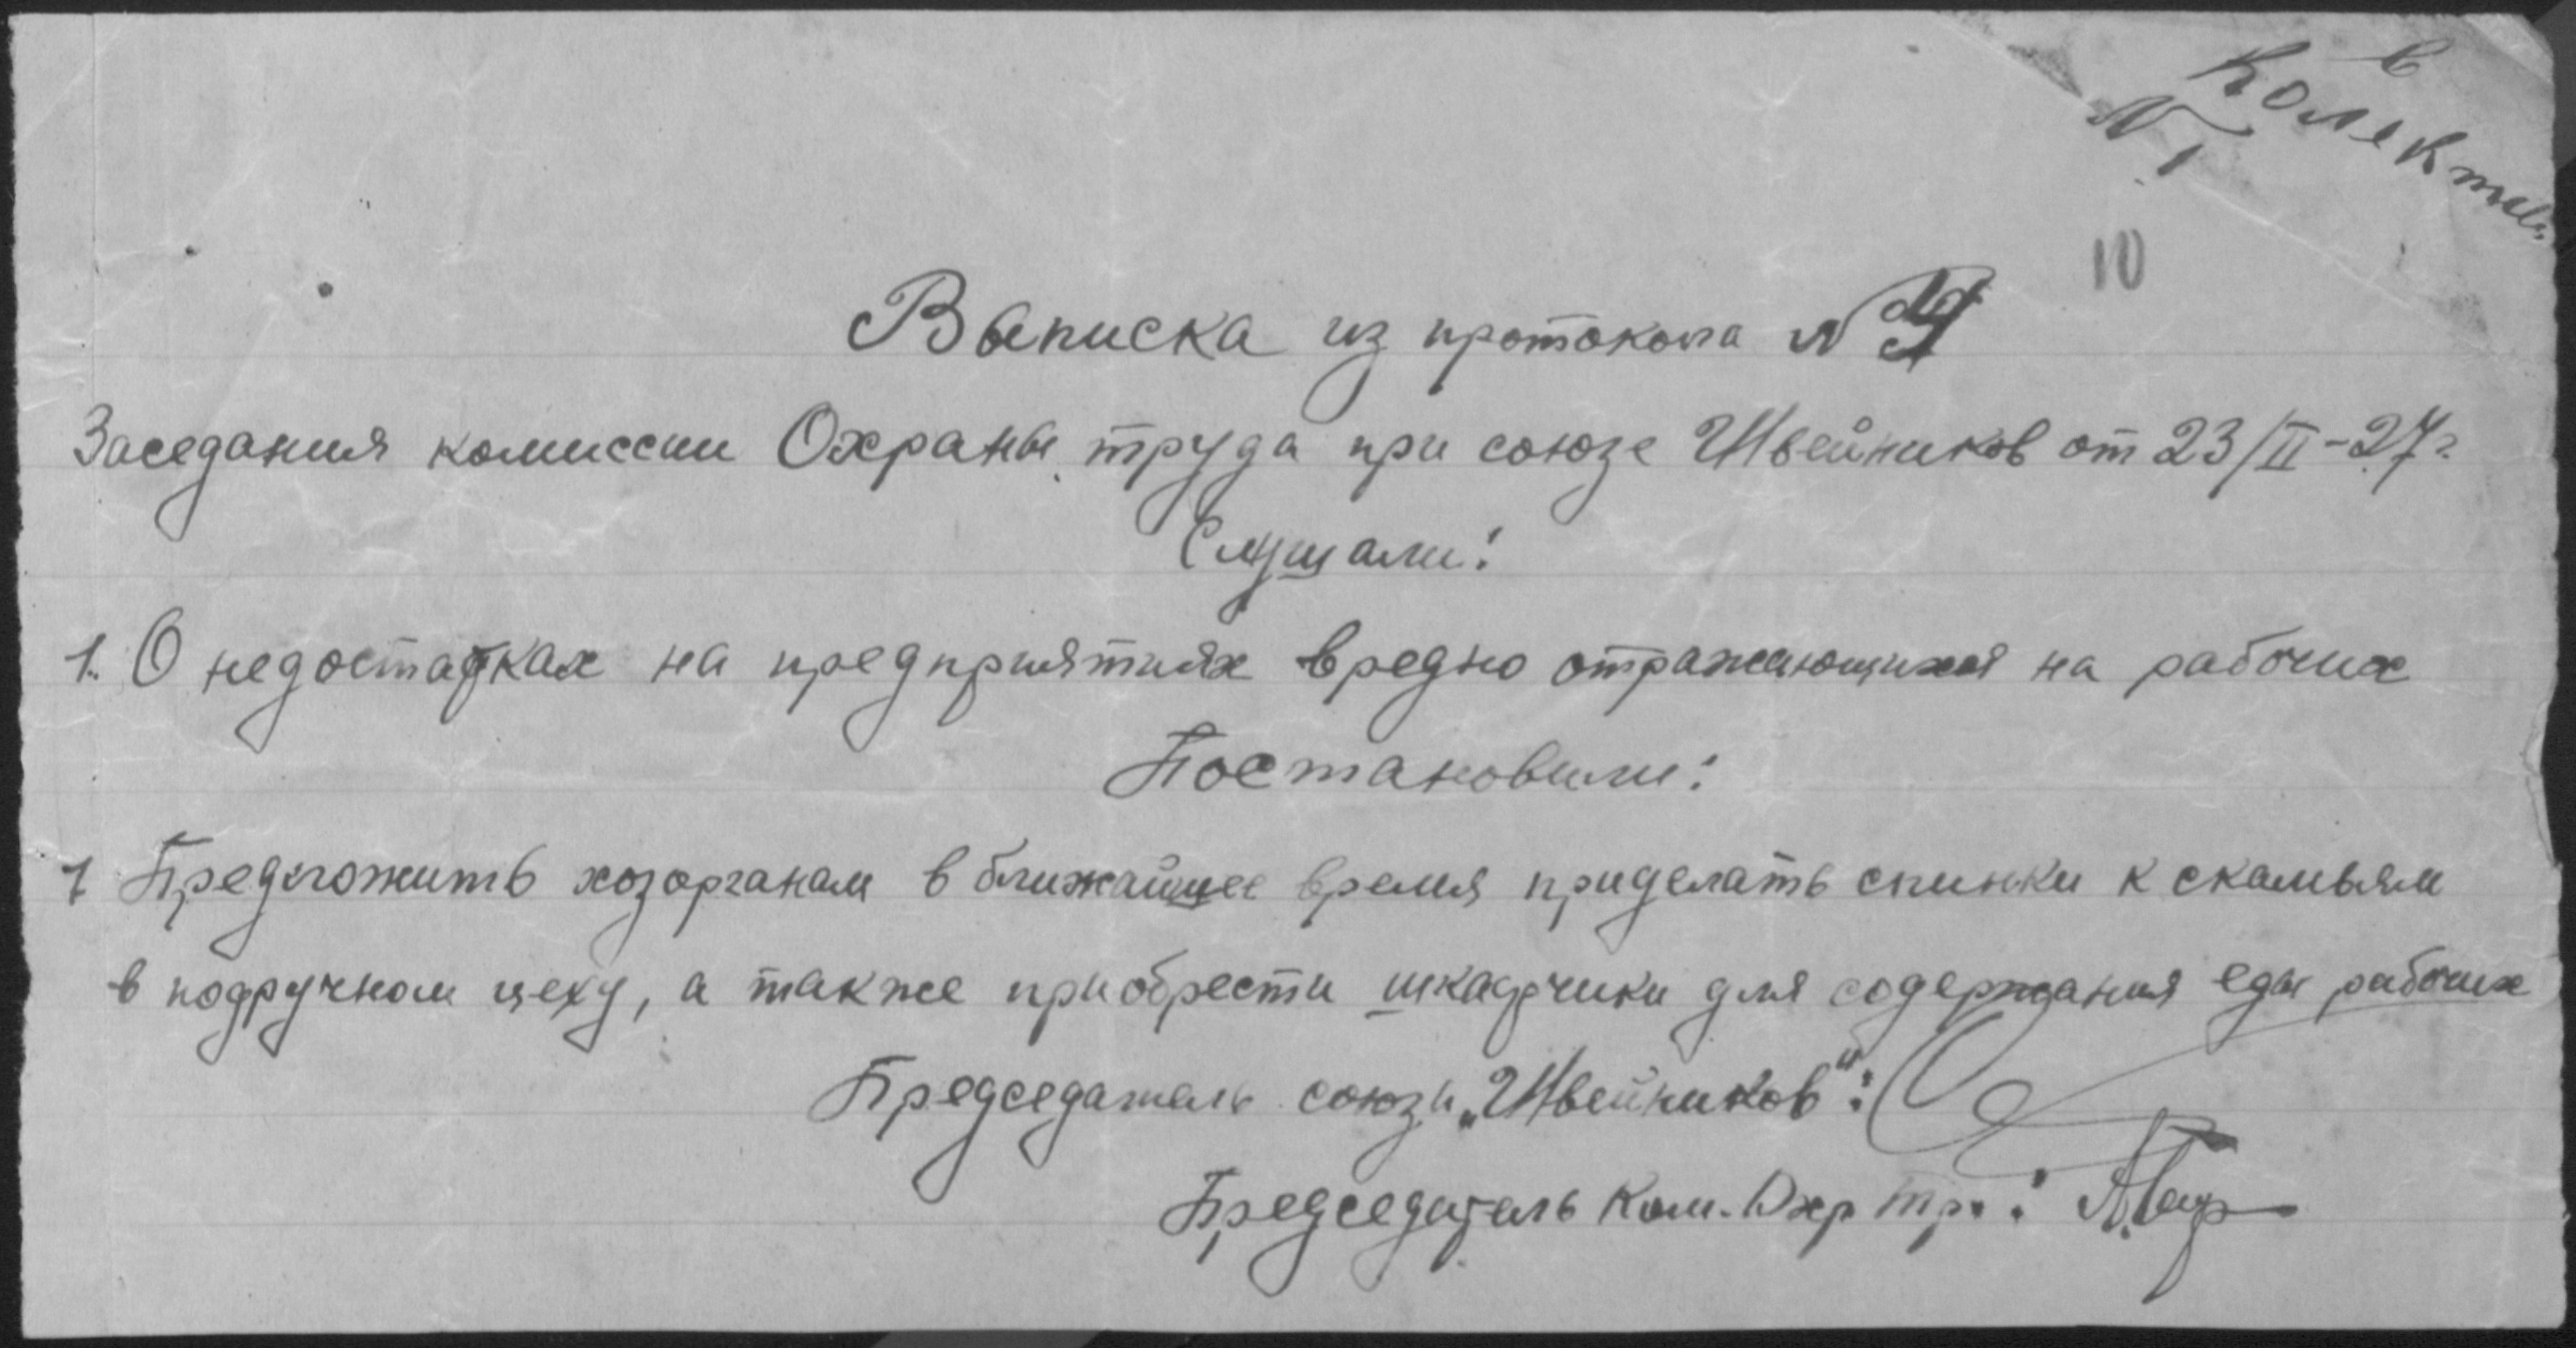 в
Колектив
№ 1
10
Выписка из протокола №
Заседания комиссии Охраны труда при союзе Швейников от 23/II-27г.
Слушали:
1. О недостатках на предприятиях вредно отражающихся на рабочих
Постановили:
1 Предложить хозорганам в ближайшее время приделать спинки к скамьям
в подручном цеху, а также приобрести шкафчики для содержания еды рабочих
Председатель союза „Швейников“:
Председатель Ком. Охр тр.: